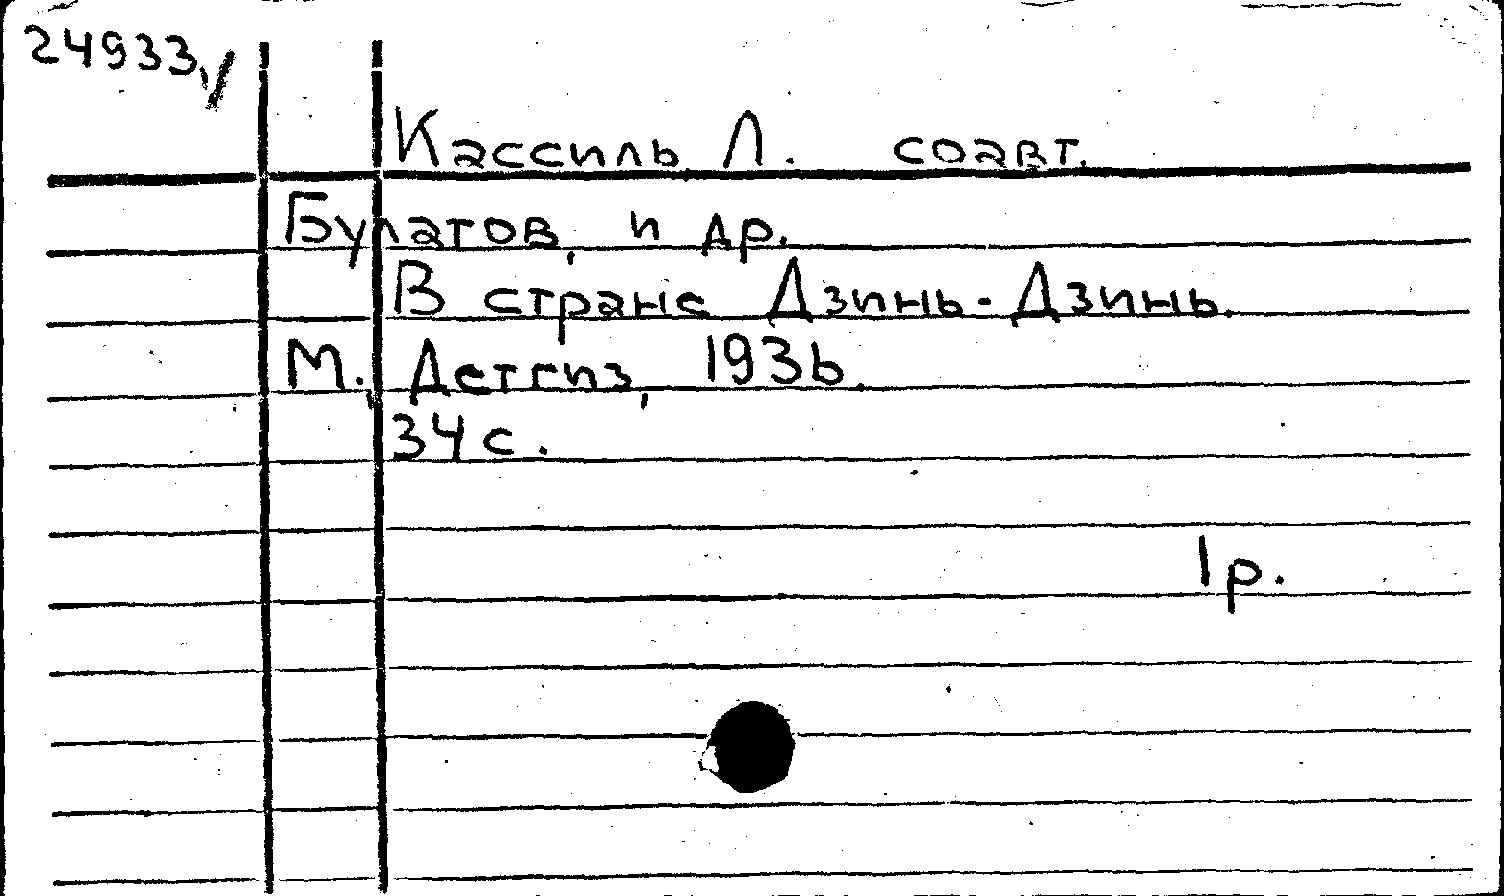 24933√
Кассиль Л. соавт.
Булатов, и др.
В стране Дзинь-Дзинь.
М., Детгиз, 1936.
34 с.
1 р.